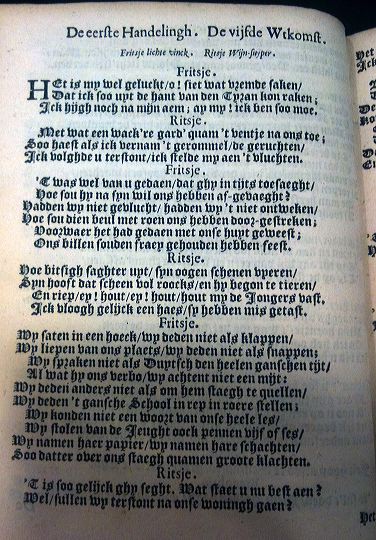 De eerste Handelingh. De vijfde Wtkomst.
Fritsje lichte vinck. Ritsje Wijn-suyper.
Fritsje.
HEt is my wel geluckt/o! siet wat vremde saken/
Dat ick soo uyt de hant van den Tyran kon raken;
Ick hijgh noch na mijn aem; ay my! ick ben soo moe.
Ritsje.
Met wat een wack're gard' quam 't ventje na ons toe;
Soo haest als ick vernam 't gerommel/de geruchten/
Ick volghde u terstont/ick stelde my aen 't vluchten.
Fritsje.
'T was wel van u gedaen/dat ghy in tijts toesaeght/
Hoe sou hy na syn wil ons hebben af-gevaeght?
Hadden wy niet gevlucht/hadden wy 't niet ontweken/
Hoe sou dien beul met roen ons hebben door-gestreken;
Voorwaer het had gedaen met onse huyt geweest;
Ons billen souden fraey gehouden hebben feest.
Ritsje.
Hoe bitsigh sagh ter uyt/syn oogen schenen vyeren/
Syn hooft dat scheen vol roocks/en hy begon te tieren/
En riep/ey! hout/ey! hout/hout my de Jongers vast.
Ick vloogh gelijck een haes/sy hebben mis getast.
Fritsje.
Wy saten in een hoeck/wy deden niet als klappen/
Wy liepen van ons plaets/wy deden niet als snappen;
Wy spraken niet als Duytsch den heelen ganschen tijt/
Al wat hy ons verbo/wy achtent niet een mijt:
Wy deden anders niet als om hem staegh te quellen/
Wy deden 't gansche School in rep in roere stellen;
Wy konden niet een woort van onse heele les/
Wy stolen van de Jeught oock pennen vijf of ses/
Wy namen haer papier/wy namen hare schachten/
Soo datter over ons staegh quamen groote klachten.
Ritsje.
'T is soo gelijck ghy seght. Wat staet u nu best aen?
Wel/sullen wy terstont na onse woningh gaen?